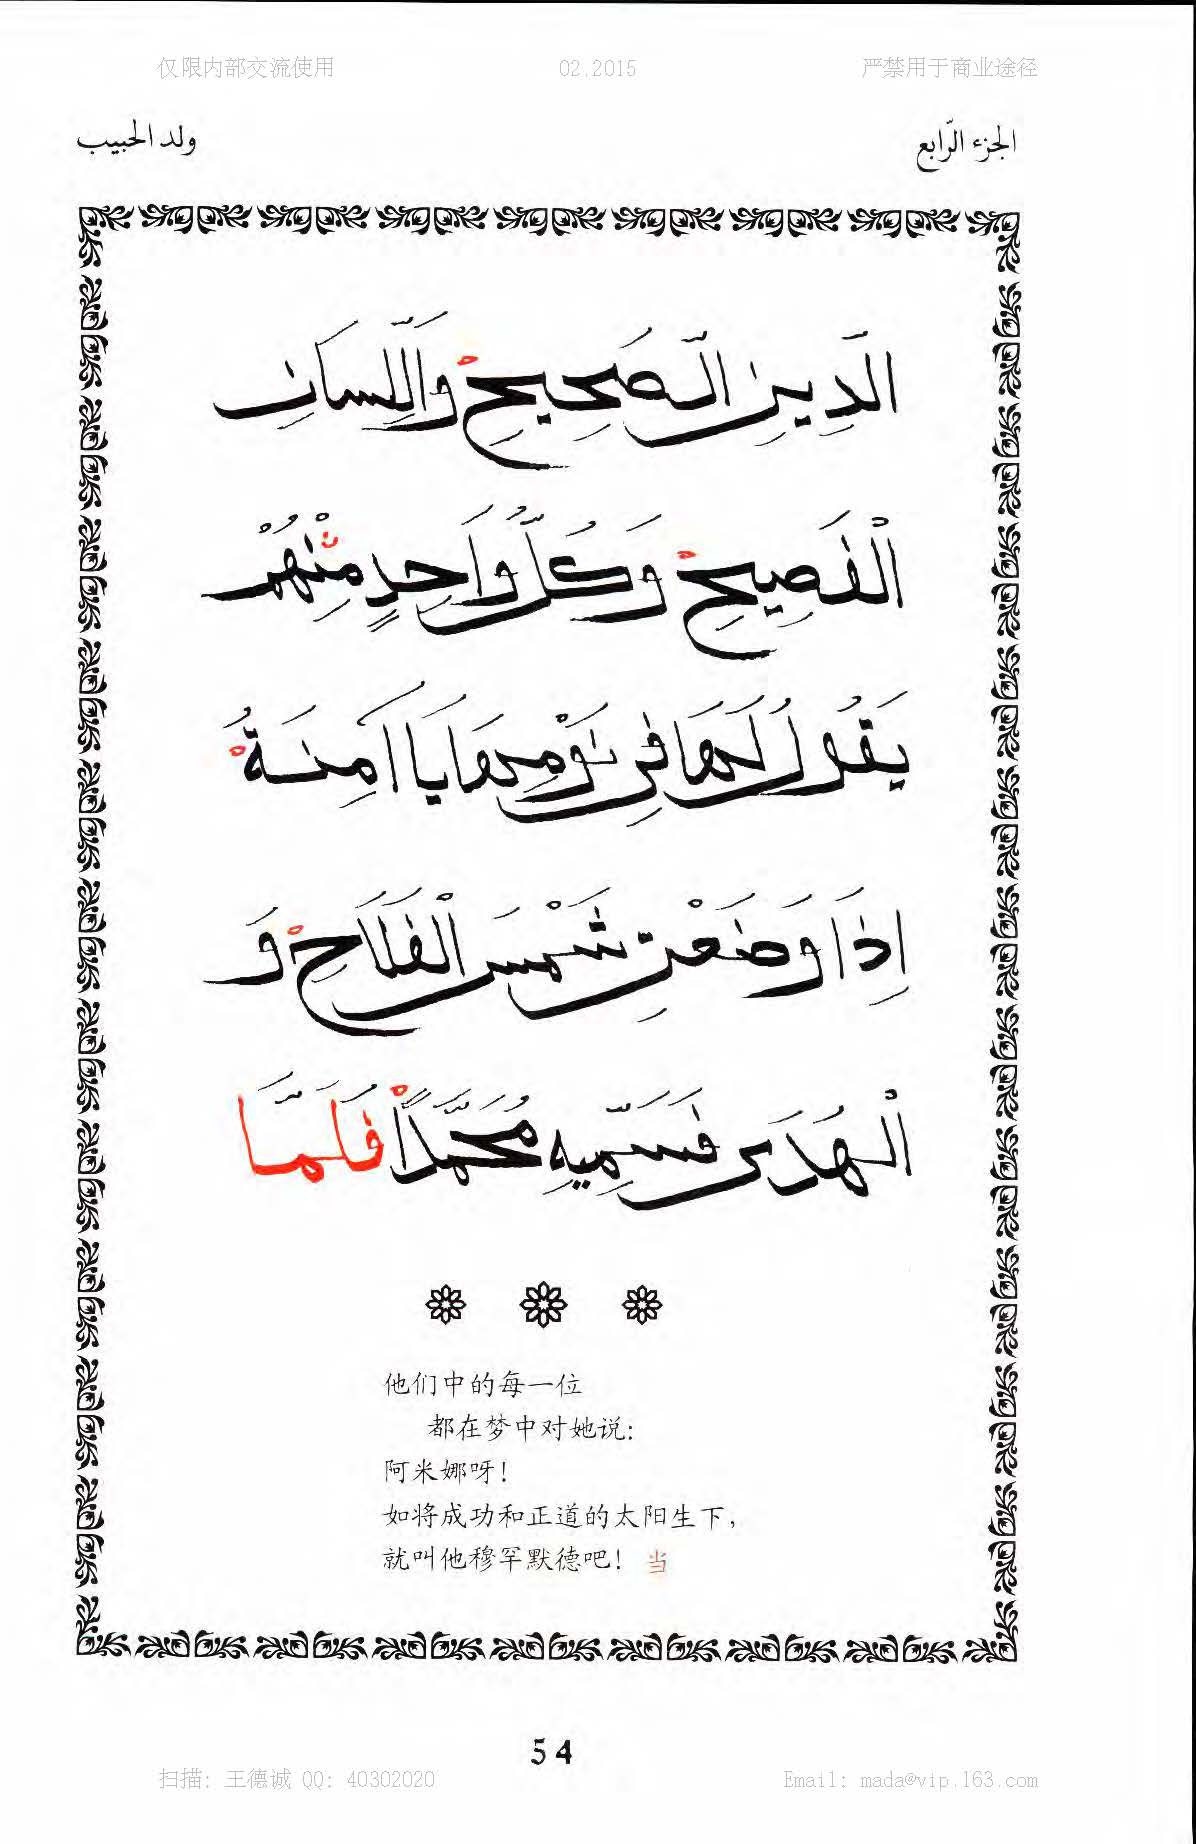 仅限内部交流使用 02.2015 严禁用于商业途径
الجزء الرّابع ولد الحبيب
الَدِينِ الصَّحِيحِ وَاللِّسَانِ
الْفَصِيحِ وَكُلُّ وَاحِدٍ مِنْهُمْ
يَقُولُ لَهَا فِي نَوْمِهَا يَا اَمِنَةُ
اِذَا وَضَعْتِ شَمْسَ الْفَلَاحِ وَ
الْهُدَى فَسَمِّيهِ مُحَمَّدًا فَلَمَّا
他们中的每一位
都在梦中对她说:
阿米娜呀!
如将成功和正道的太阳生下,
就叫他穆罕默德吧! 当
54
扫描: 王德诚 QQ: 40302020 Email: mada@vip.163.com